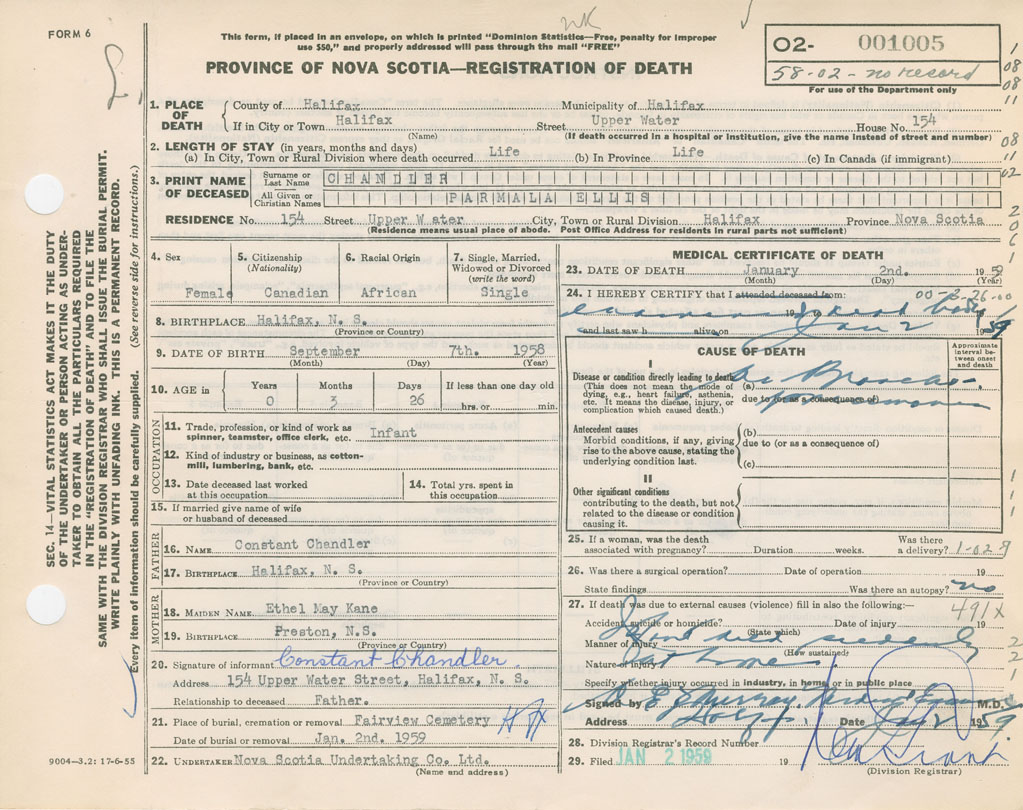 FORM 6
NK
This form, if placed in an envelope, on which is printed "Dominion Statistics—Free, penalty for improper
use $50," and properly addressed will pass through the mail "FREE"
PROVINCE OF NOVA SCOTIA—REGISTRATION OF DEATH
02- 001005
58-02-no record
For use of the Department only
1. PLACE OF DEATH
County of Halifax Municipality of Halifax
If in City or Town Halifax Street Upper Water House No. 154
(Name) (If death occurred in a hospital or institution, give the name instead of street and number)
2. LENGTH OF STAY (in years, months and days)
(a) In City, Town or Rural Division where death occurred Life (b) In Province Life (c) In Canada (if immigrant)
3. PRINT NAME OF DECEASED
Surname or Last Name CHANDLER
All Given or Christian Names PARMALA ELLIS
RESIDENCE No. 154 Street Upper Water City, Town or Rural Division Halifax Province Nova Scotia
(Residence means usual place of abode. Post Office Address for residents in rural parts not sufficient)
4. Sex
Female
5. Citizenship
(Nationality)
Canadian
6. Racial Origin
African
7. Single, Married,
Widowed or Divorced
(write the word)
Single
8. BIRTHPLACE Halifax, N. S.
(Province or Country)
9. DATE OF BIRTH September 7th. 1958
(Month) (Day) (Year)
10. AGE in Years Months Days If less than one day old
0 3 26 hrs. or min.
OCCUPATION
11. Trade, profession, or kind of work as
spinner, teamster, office clerk, etc. Infant
12. Kind of industry or business, as cotton-
mill, lumbering, bank, etc.
13. Date deceased last worked
at this occupation
14. Total yrs. spent in
this occupation
15. If married give name of wife
or husband of deceased
FATHER
16. NAME Constant Chandler
17. BIRTHPLACE Halifax, N. S.
(Province or Country)
MOTHER
18. MAIDEN NAME Ethel May Kane
19. BIRTHPLACE Preston, N.S.
(Province or Country)
20. Signature of informant Constant Chandler
Address 154 Upper Water Street, Halifax, N. S.
Relationship to deceased Father.
21. Place of burial, cremation or removal Fairview Cemetery Hfx
Date of burial or removal Jan. 2nd. 1959
22. UNDERTAKER Nova Scotia Undertaking Co. Ltd.
(Name and address)
MEDICAL CERTIFICATE OF DEATH
23. DATE OF DEATH January 2nd. 1959
(Month) (Day) (Year)
24. I HEREBY CERTIFY that I attended deceased from: 00-3-26-00
examined dead body 19
and last saw h alive on Jan 2 1959
CAUSE OF DEATH
Approximate
interval be-
tween onset
and death
I
Disease or condition directly leading to death
(This does not mean the mode of
dying, e.g., heart failure, asthenia,
etc. It means the disease, injury, or
complication which caused death.)
(a) Broncho-
due to (or as a consequence of) pneumonia
Antecedent causes
Morbid conditions, if any, giving
rise to the above cause, stating the
underlying condition last.
(b)
due to (or as a consequence of)
(c)
II
Other significant conditions
contributing to the death, but not
related to the disease or condition
causing it.
25. If a woman, was the death
associated with pregnancy? Duration weeks. Was there
a delivery?
26. Was there a surgical operation? Date of operation 19
State findings Was there an autopsy? no
27. If death was due to external causes (violence) fill in also the following:— 491X
Accident, suicide or homicide? Date of injury 19
(State which)
Manner of injury died suddenly
(How sustained)
Nature of injury at home
Specify whether injury occurred in industry, in home, or in public place
Signed by M.D.
Address Date Jan 2 1959
28. Division Registrar's Record Number
29. Filed JAN 2 1959 19
(Division Registrar)
SEC. 14—VITAL STATISTICS ACT MAKES IT THE DUTY
OF THE UNDERTAKER OR PERSON ACTING AS UNDER-
TAKER TO OBTAIN ALL THE PARTICULARS REQUIRED
IN THE "REGISTRATION OF DEATH" AND TO FILE THE
SAME WITH THE DIVISION REGISTRAR WHO SHALL ISSUE THE BURIAL PERMIT.
WRITE PLAINLY WITH UNFADING INK. THIS IS A PERMANENT RECORD.
Every item of information should be carefully supplied. (See reverse side for instructions.)
9004—3.2: 17-6-55